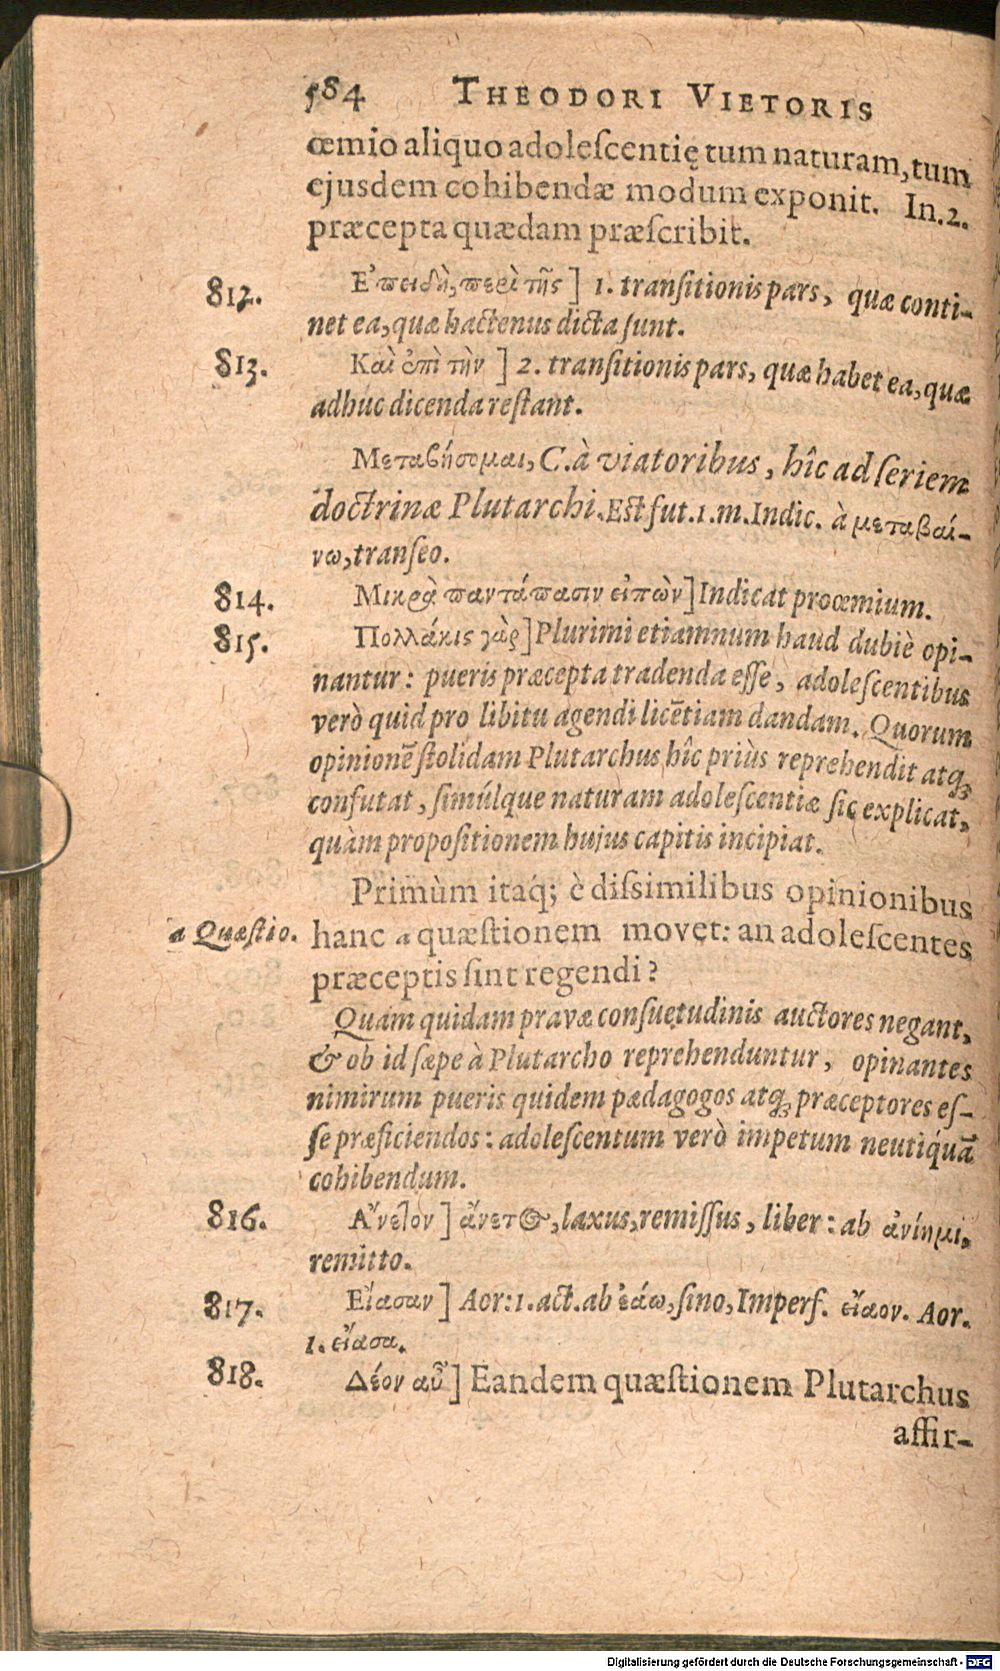 584 THEODORI VIETORIS
œmio aliquo adoleſcentię tum naturam, tum
ejusdem cohibendæ modum exponit. In. 2.
præcepta quædam præſcribit.
812. Ε᾿πειδὴ, περὶ τῆς ] 1. tranſitionis pars, quæ conti-
net ea, quæ hactenus dicta ſunt.
813. Καὶ ἐπὶ τὴν ] 2. tranſitionis pars, quæ habet ea, quæ
adhuc dicenda reſtant.
Μεταβήσομαι, C. à viatoribus, hîc ad ſeriem
doctrinæ Plutarchi. Eſt fut. 1. m. Indic. à μεταβαί-
νω, tranſeo.
814. Μικρὰ παντάπασιν εἰπὼν] Indicat proœmium.
815. Πολλάκις γὰρ] Plurimi etiamnum haud dubiè opi-
nantur: pueris præcepta tradenda eſſe, adoleſcentibus
verò quid pro libitu agendi licẽtiam dandam. Quorum
opinionẽ ſtolidam Plutarchus hîc priùs reprehendit atq́;
confutat, ſimúlque naturam adoleſcentiæ ſic explicat,
quàm propoſitionem hujus capitis incipiat.
Primùm itaq́; è diſsimilibus opinionibus
a Quæſtio. hanc a quæſtionem movet: an adoleſcentes
præceptis ſint regendi?
Quam quidam pravæ conſuetudinis auctores negant,
& ob id ſæpe à Plutarcho reprehenduntur, opinantes
nimirum pueris quidem pædagogos atq́; præceptores eſ-
ſe præficiendos: adoleſcentum verò impetum neutiq́uã
cohibendum.
816. Α῎νετον ] ἄνετος, laxus, remiſſus, liber: ab ἀνίημι,
remitto.
817. Εἴασαν ] Aor: 1. act. ab ἐάω, ſino, Imperf. εἴαον. Aor.
1. εἴασα.
818. Δέον αὖ ] Eandem quæſtionem Plutarchus
affir-
Digitalisierung gefördert durch die Deutsche Forschungsgemeinschaft - DFG